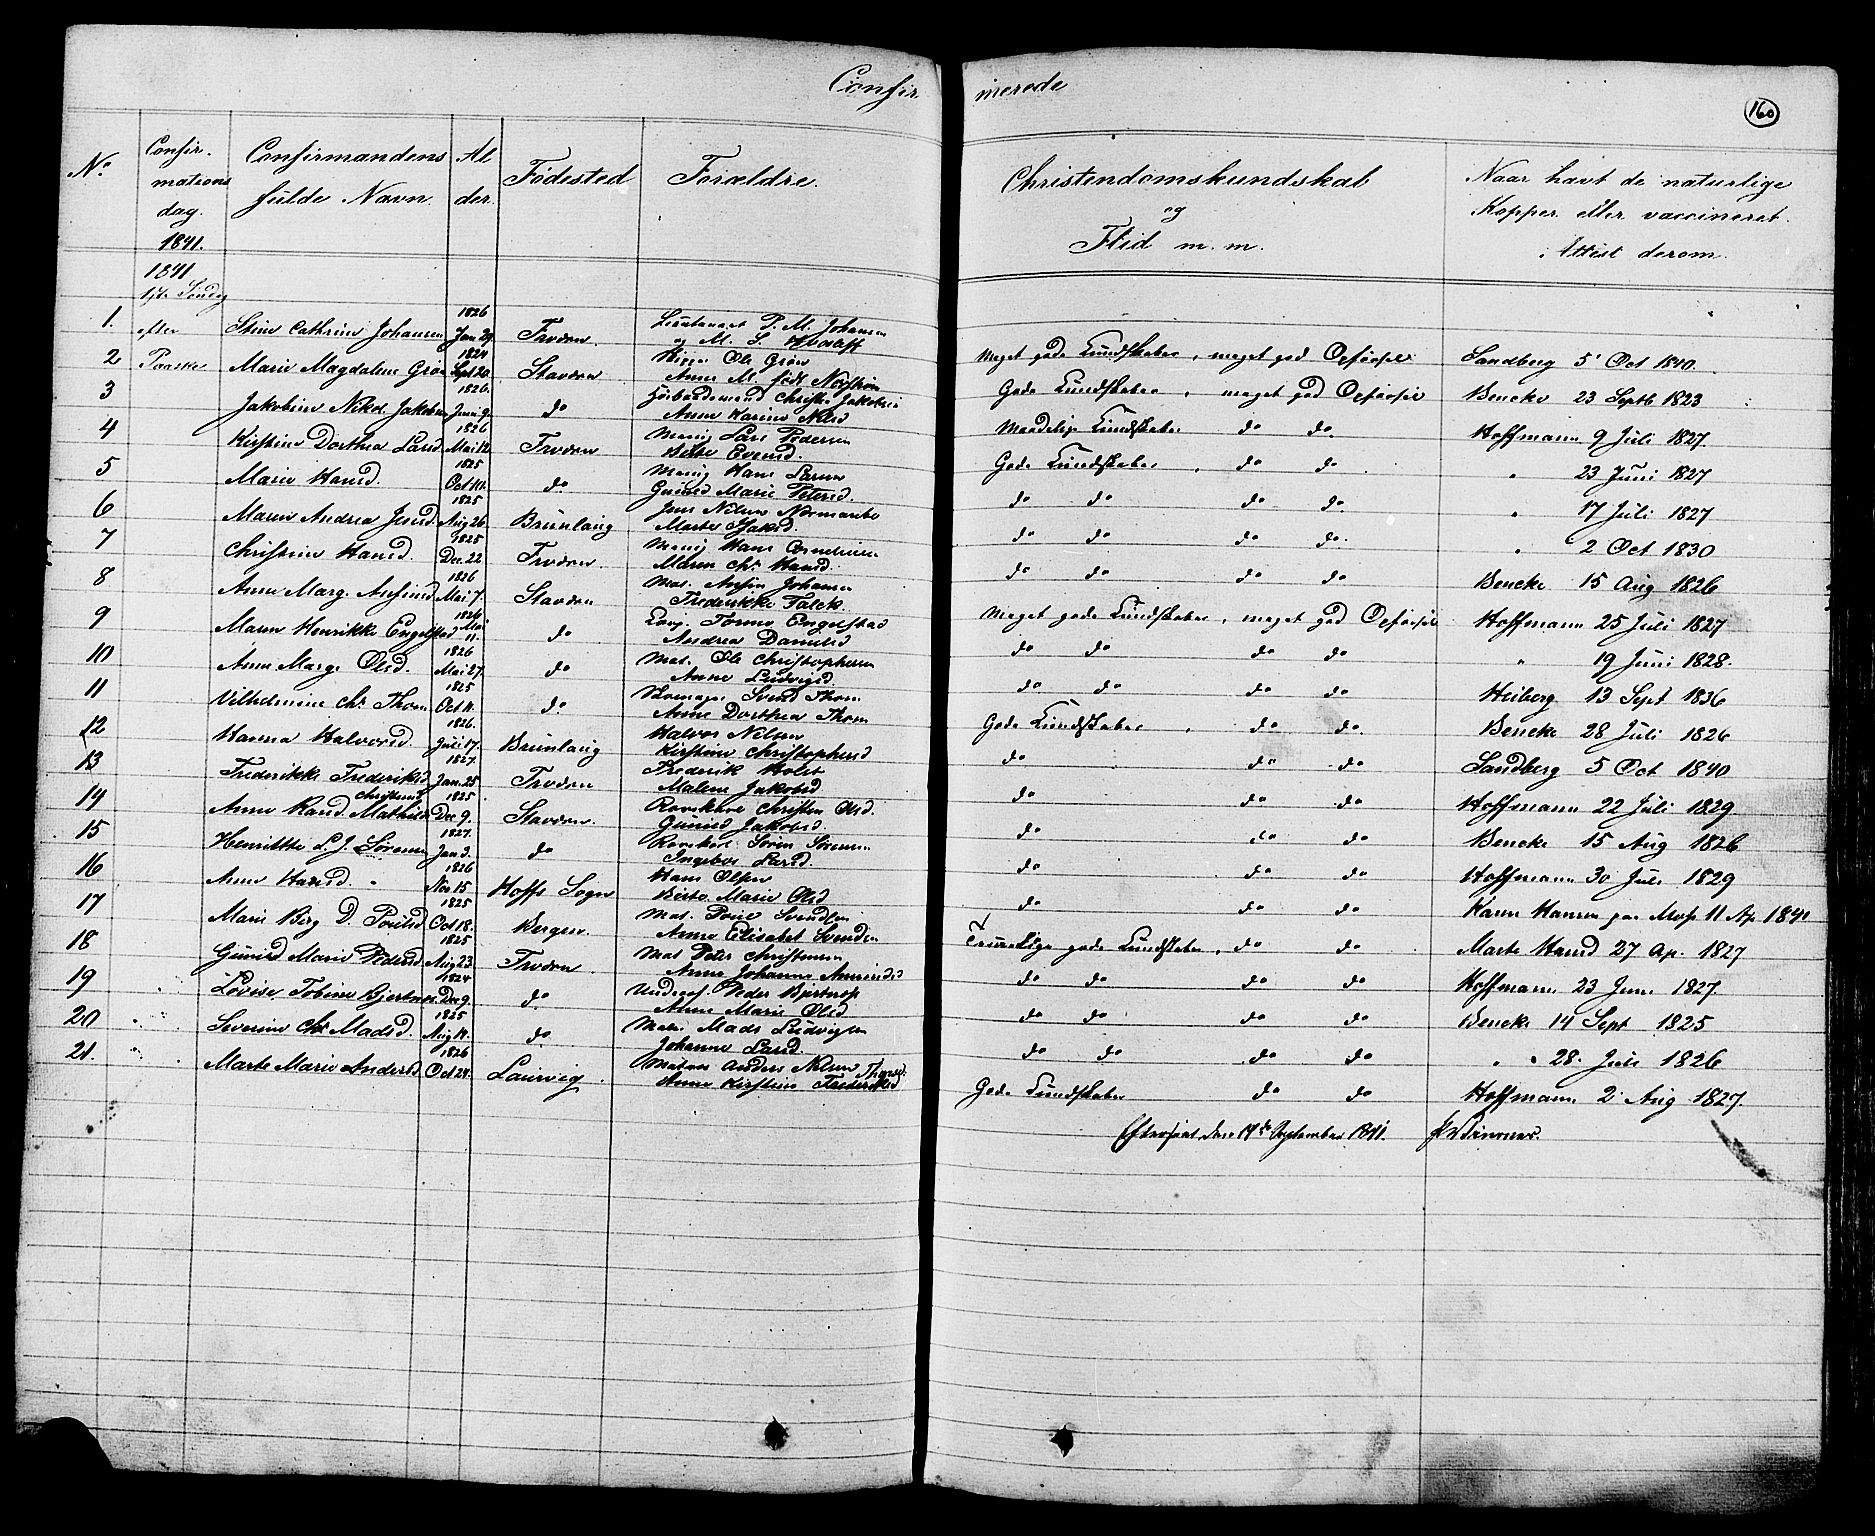 Confir merede
160
No
Confirmations dag. 1841.
Confirmandens fulde Navn.
Alder.
Fødested
Forældre.
Christendomskundskab og Flid m. m.
Naar havt de naturlige Kopper eller vaccineret. Attest derom.
1841 Søndag efter Paaske
1. Stine Cathrine Johansen 1826 Jan 29 Fredern. Lieutenant P. M. Johansen og M. S. Meget gode Kundskaber, meget god Opførsel Sandberg 5 Oct 1840.
2 Maria Magdalene Grøn 1824 Sept 20. Stavern Ole Grøn Anne M. født Meget god Opførsel Bencke 23 Septb 1823
3 Jakobine Nikol. Jakobsen 1826. Juni 9. do Christen Jakobsen Anne Karine Nilsd Maadelige Kundskaber do do Hoffmann 9 Juli 1827.
4 Kirstine Dorthea Larsd 1826 Mai 12. Fredern Lars Pedersen Berte Evensd. Gode Kundskaber, do do " 23 Juni 1827
5 Maria Hansd. 1825 Oct 14. do Hans Larsen Gunild Marie Petersd. do do do do " 17 Juli 1827
6 Maren Andrea Jensd. 1825 Aug 26 Brunlaug Jens Nilsen Marte Isaksd. do do do do " 2 Oct 1830
7 Christine Hansd. 1825 Dec. 22 Fredern Hans Corneliusen Maren Chr. Hansd. do do do do Bencke 15 Aug 1826
8 Anne Marg. 1826 Mai 7. Stavern Mat. Johansen Frederikke Falck. Meget gode Kundskaber, meget god Opførsel Hoffmann 25 Juli 1827
9 Maren Henrikke Engelstad 1826 Mai 11. do Tønnes Engelstad Andrea Danielsd do do do do " 19 Juni 1828.
10 Anne Marg. Olsd. 1826 Mai 27. do Mat. Ole Christophersen Anne Ludvigsd do do do do Heiberg 13 Sept 1836
11 Vilhelmine Chr. Thom 1825 Oct 11. do Svend Thom Anne Dorthea Thom Gode Kundskaber, do do Bencke 28 Juli 1826
12 Hanna Halvorsd. 1826. Juli 17. Brunlaug Halvor Nilsen Kirstine Christophersd do do do Sandberg 5 Oct 1840
13 Frederikke Frederiksd 1827. Jan. 25 Fredern Frederik Holst Malene Jakobsd do do do Hoffmann 22 Juli 1829
14 Anne Rand. Mathilde Christensd 1825 Dec 9. Stavern. Christen Olsd. Gunild Jakobsd. do do do Bencke 15 Aug 1826
15 Henriette L. J. Sørensen 1827. Jan 3. do Søren Sørensen Ingebor Larsd. do do do Hoffmann 30 Juli 1829
16 Anne Hansd. 1826 Nov 15 Hoffs Sogn Hans Olsen Berte Marie Olsd do do do Hansen 11 Ap. 1841
17 Marie Berg D. Povelsd 1825 Oct 18. Bergen. Mat. Povel Svendsen Anne Elisabet Svendsen Temmelige gode Kundskaber, do do Marte Hansd 27 Ap. 1827
18 Gunild Marie Pedersd 1825 Aug 23 Fredern Mat Peter Christensen Anne Johanne do do do do Hoffmann 23 Juni 1827.
19 Lovise Tobine Bjertnes 1824 Dec 9. do Peder Anne Marie Olsd do do do do Bencke 14 Sept 1825
20 Severine Chr. Madsd. 1825 Aug 14. do Mads Ludvigsen Johanne Larsd. do do do do " " 28. Juli 1826
21. Marte Marie Andersd 1826 Oct 24. Laurvig. Matros Anders Nilsen Anne Kirstine Frederiksd Gode Kundskaber do do Hoffmann 2 Aug 1827.
Efterseet den 14de September 1841.